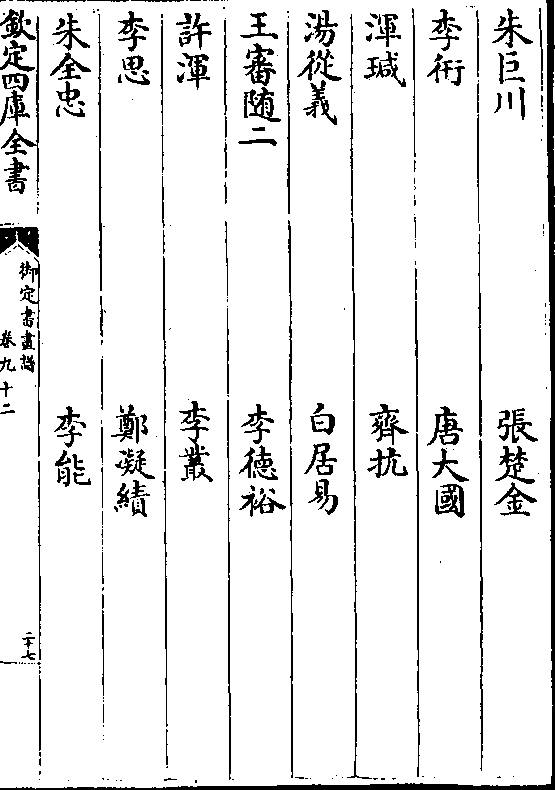 朱巨川　張楚金
李衎　唐大國
渾瑊　齊抗
湯從義　白居易
王審随二　李德裕
許渾　李叢
李思　鄭凝績
朱全忠　李能
欽定四庫全書　御定書畫譜　卷九十二　二十七